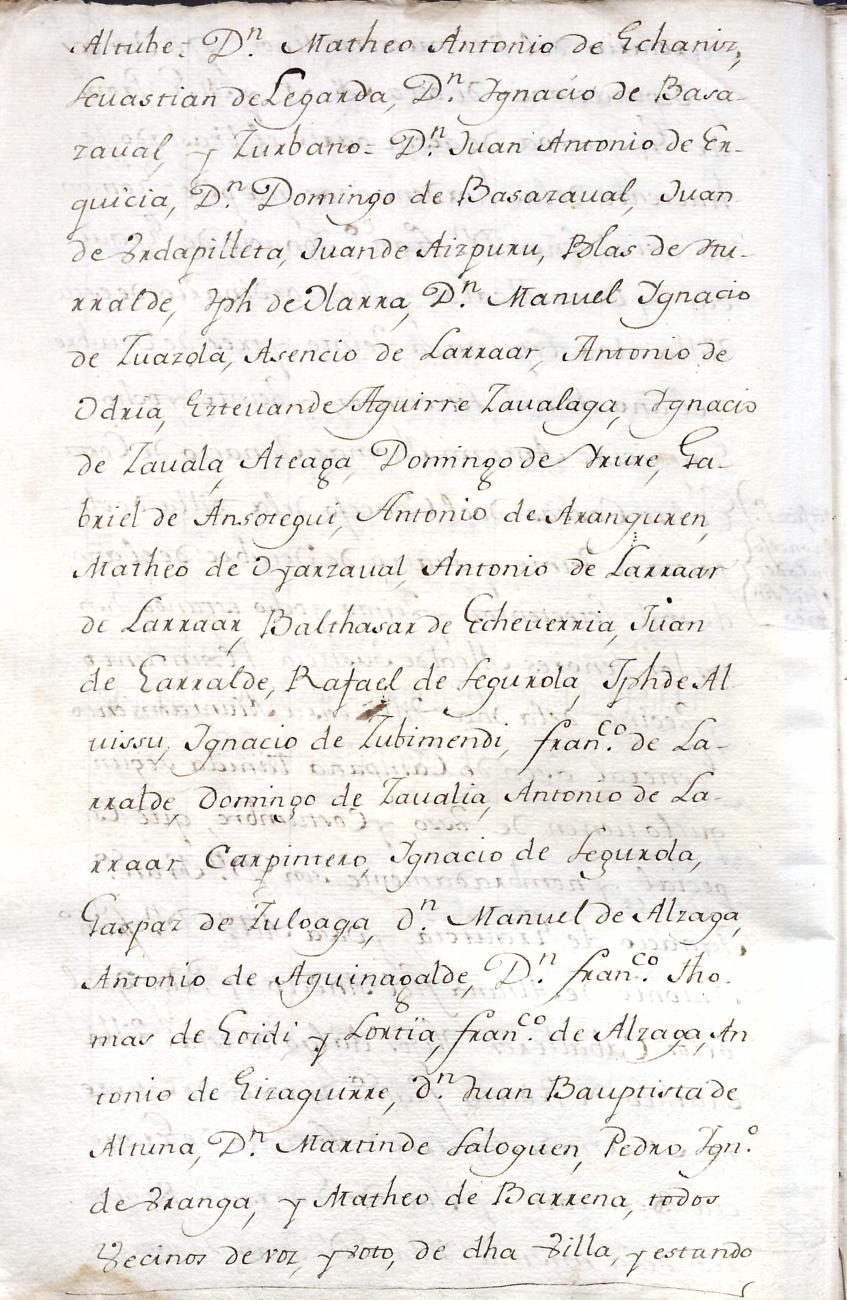 Altube= Dⁿ. Matheo Antonio de Echaniz,
Seuastian de Legarda, Dⁿ. Ygnacio de Basa-
zaual, y Zurbano= Dⁿ. Juan Antonio de Er-
quicia, Dⁿ. Domingo de Basazaual, Juan
de Vrdapilleta, Juan de Aizpuru, Blas de Ytu-
rralde, Jph de Ylarra, Dⁿ. Manuel Ygnacio
de Zuazola, Asencio de Larraar, Antonio de
Odria, Esteuan de Aguirre Zaualaga, Ygnacio
de Zauala, Ateaga, Domingo de Yrure, Ga-
briel de Ansotegui, Antonio de Aranguren,
Matheo de Oyarzaual, Antonio de Larraar
de Larraar, Balthasar de Echeverria, Juan
de Garralde, Rafael de Segurola, Jph de Al
uissu, Ignacio de Zubimendi, franᶜᵒ. de La-
rralde, Domingo de Zaualia, Antonio de La-
rraar, Carpintero, Ignacio de Segurola,
Gaspar de Zuloaga, dⁿ. Manuel de Alzaga,
Antonio de Aguinagalde, Dⁿ. franᶜᵒ. Tho-
mas de Goidi y Lortia, franᶜᵒ. de Alzaga, An
tonio de Eizaguirre, dⁿ. Juan Bauptista de
Altuna, Dⁿ. Martin de Saloguen, Pedro Ignᵒ.
de Vranga, y Matheo de Barrena, todos
Vecinos de voz, y voto, de dha Villa, y estando